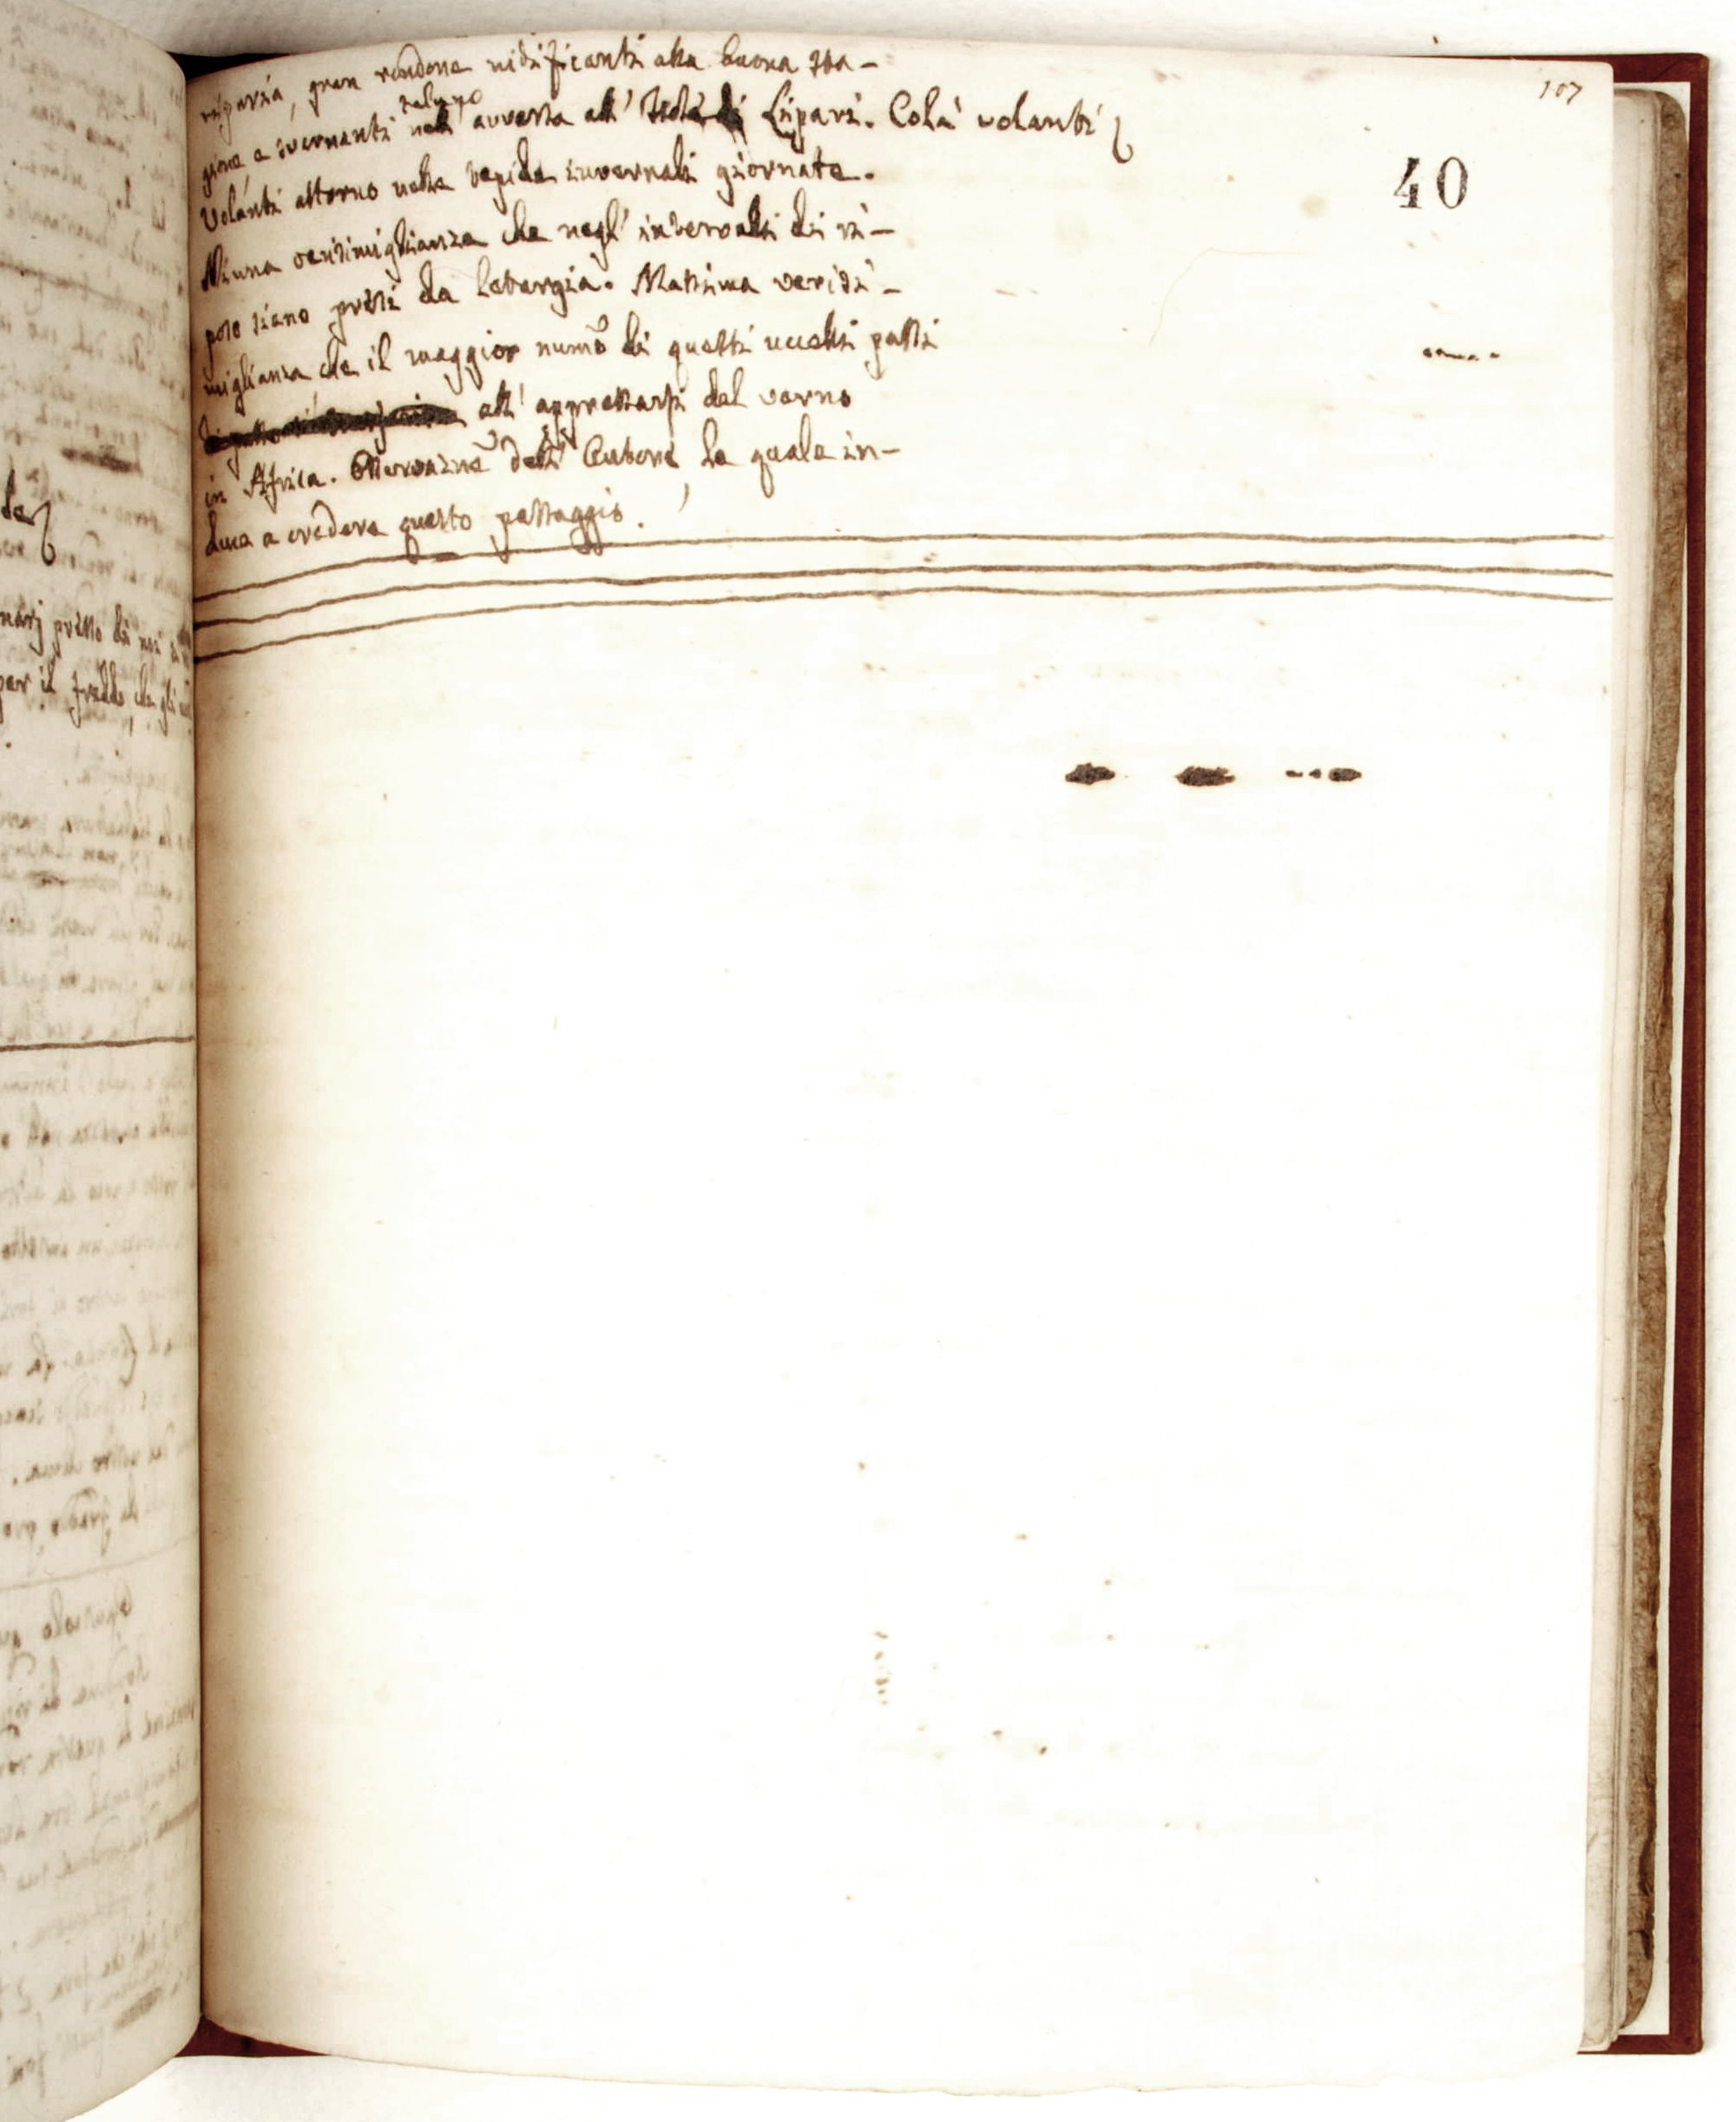 107
40
riparia, gran rondone nidificanti alla buona sta-
talvolta
gione e svernanti nell' avversa all' Isole di Lipari. Colà volanti
Volanti attorno nelle tepide invernali giornate.
Niuna verisimiglianza che negl' intervalli di ri-
poso siano presi da letargia. Massima verisi-
miglianza che il maggior numo di questi uccelli passi
all' appressarsi del verno
in Africa. Osservazine dell' Autore, la quale in-
duca a credere questo passaggio.